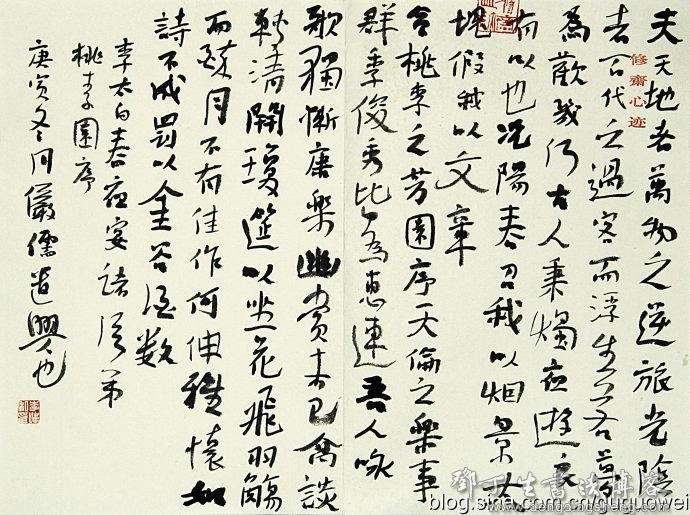 夫天地者萬物之逆旅光陰
者百代之過客而浮生若夢
為歡幾何古人秉燭夜遊良
有以也況陽春召我以烟景大
塊假我以文章
会桃李之芳園序天倫之樂事
群季俊秀皆為惠連吾人咏
歌獨慚康樂幽賞未已高談
轉清開瓊筵以坐花飛羽觴
而醉月不有佳作何伸雅懷如
詩不成罰以金谷酒數
李太白春夜宴諸從弟
桃李園序
庚寅冬月儀儒遣興也
修齋心迹
鄧丁生書法博客
blog.sina.com.cn/guguowei